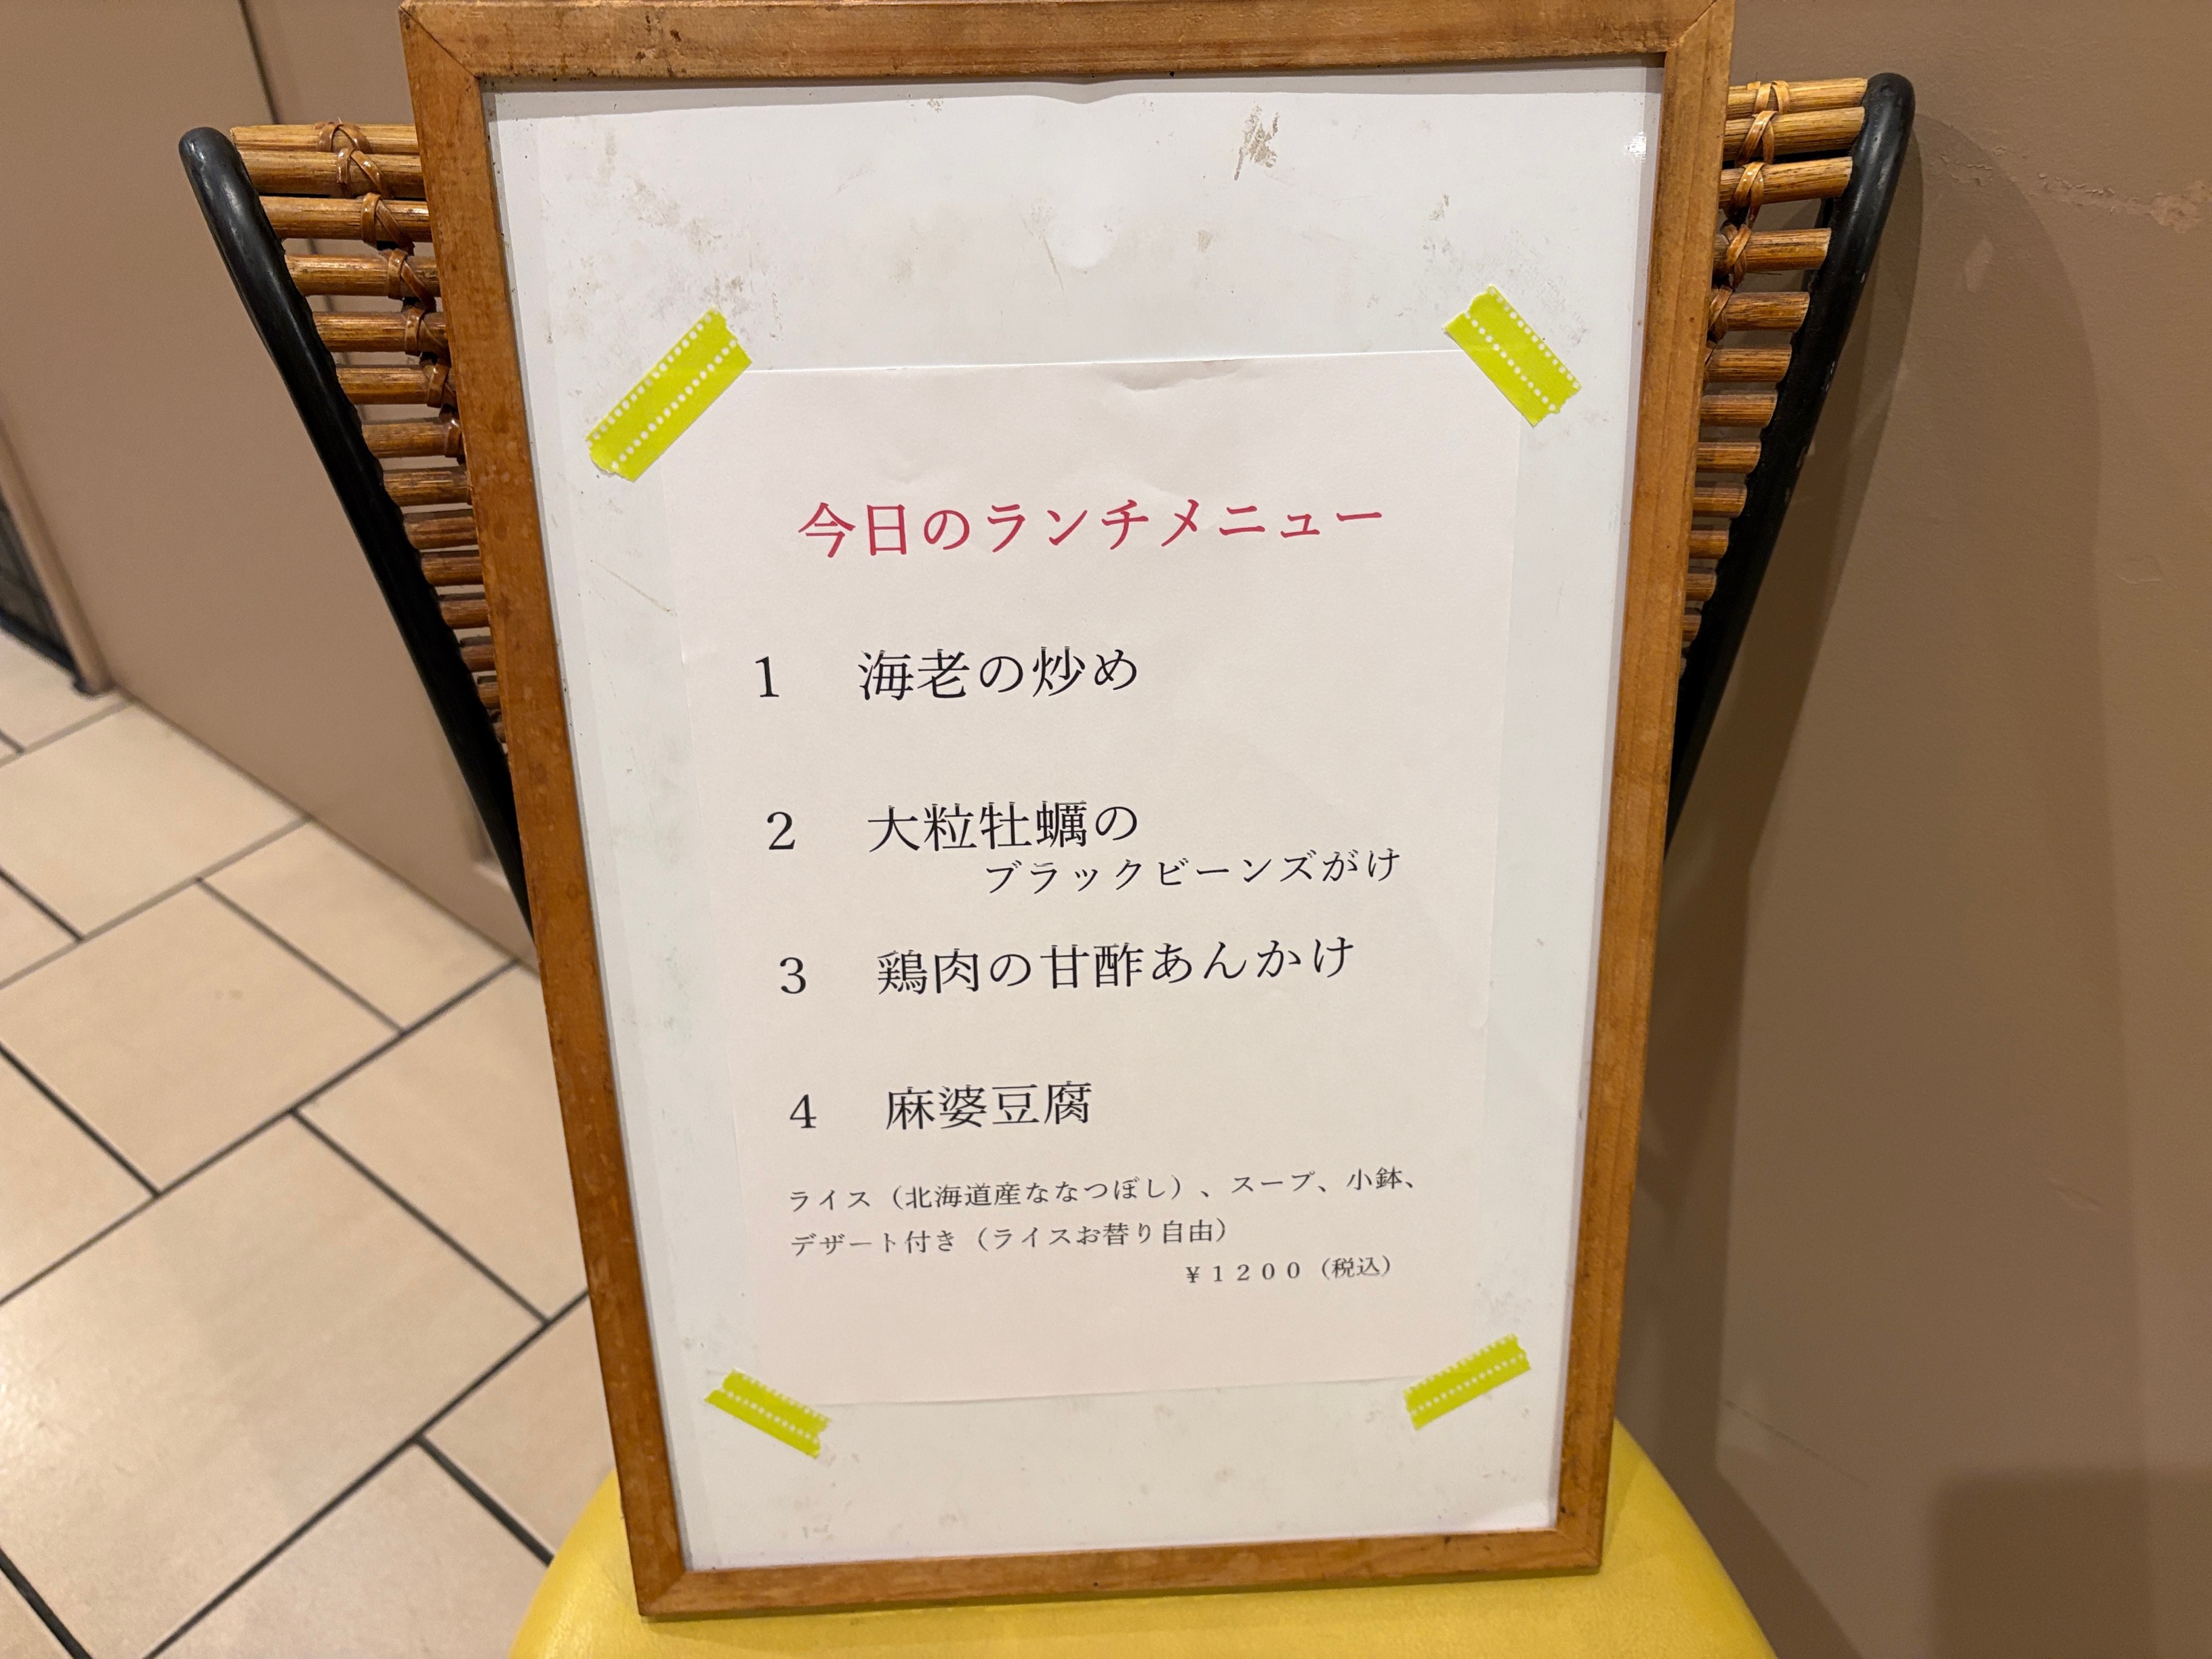 今日のランチメニュー
1　海老の炒め
2　大粒牡蠣の
ブラックビーンズがけ
3　鶏肉の甘酢あんかけ
4　麻婆豆腐
ライス（北海道産ななつぼし）、スープ、小鉢、
デザート付き（ライスお替り自由）
¥１２００（税込）